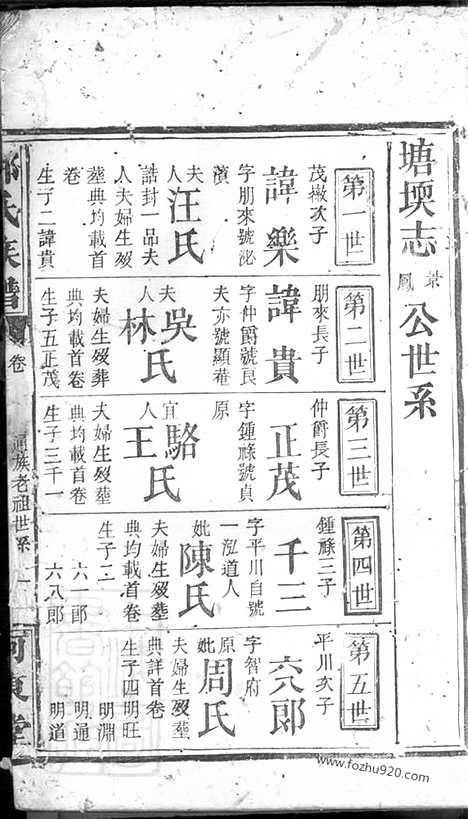 塘堧志
公世系
第一世
茂檄次子
諱樂
字朋來號泌
濵
夫人汪氏
誥封一品夫
人夫婦生歿
塟典均載首
卷
生子二諱貴
第二世
朋來長子
諱貴
字仲爵號良
夫亦號顯菴
夫人吳氏
林氏
夫婦生歿葬
典均載首卷
生子五正茂
第三世
仲爵長子
正茂
字鍾祿號貞
原
宜人駱氏
王氏
夫婦生歿塟
典均載首卷
生子三千一
第四世
鍾祿三子
千三
字平川自號
一泓道人
妣陳氏
夫婦生歿塟
典均載首卷
生子二
六一郎
六八郎
第五世
平川次子
六郎
字智府
原妣周氏
夫婦生歿塟
典詳首卷
生子四明旺
明淵
明通
明道
氏族譜
卷
族老祖世系
一
堂
www.fozhu920.com